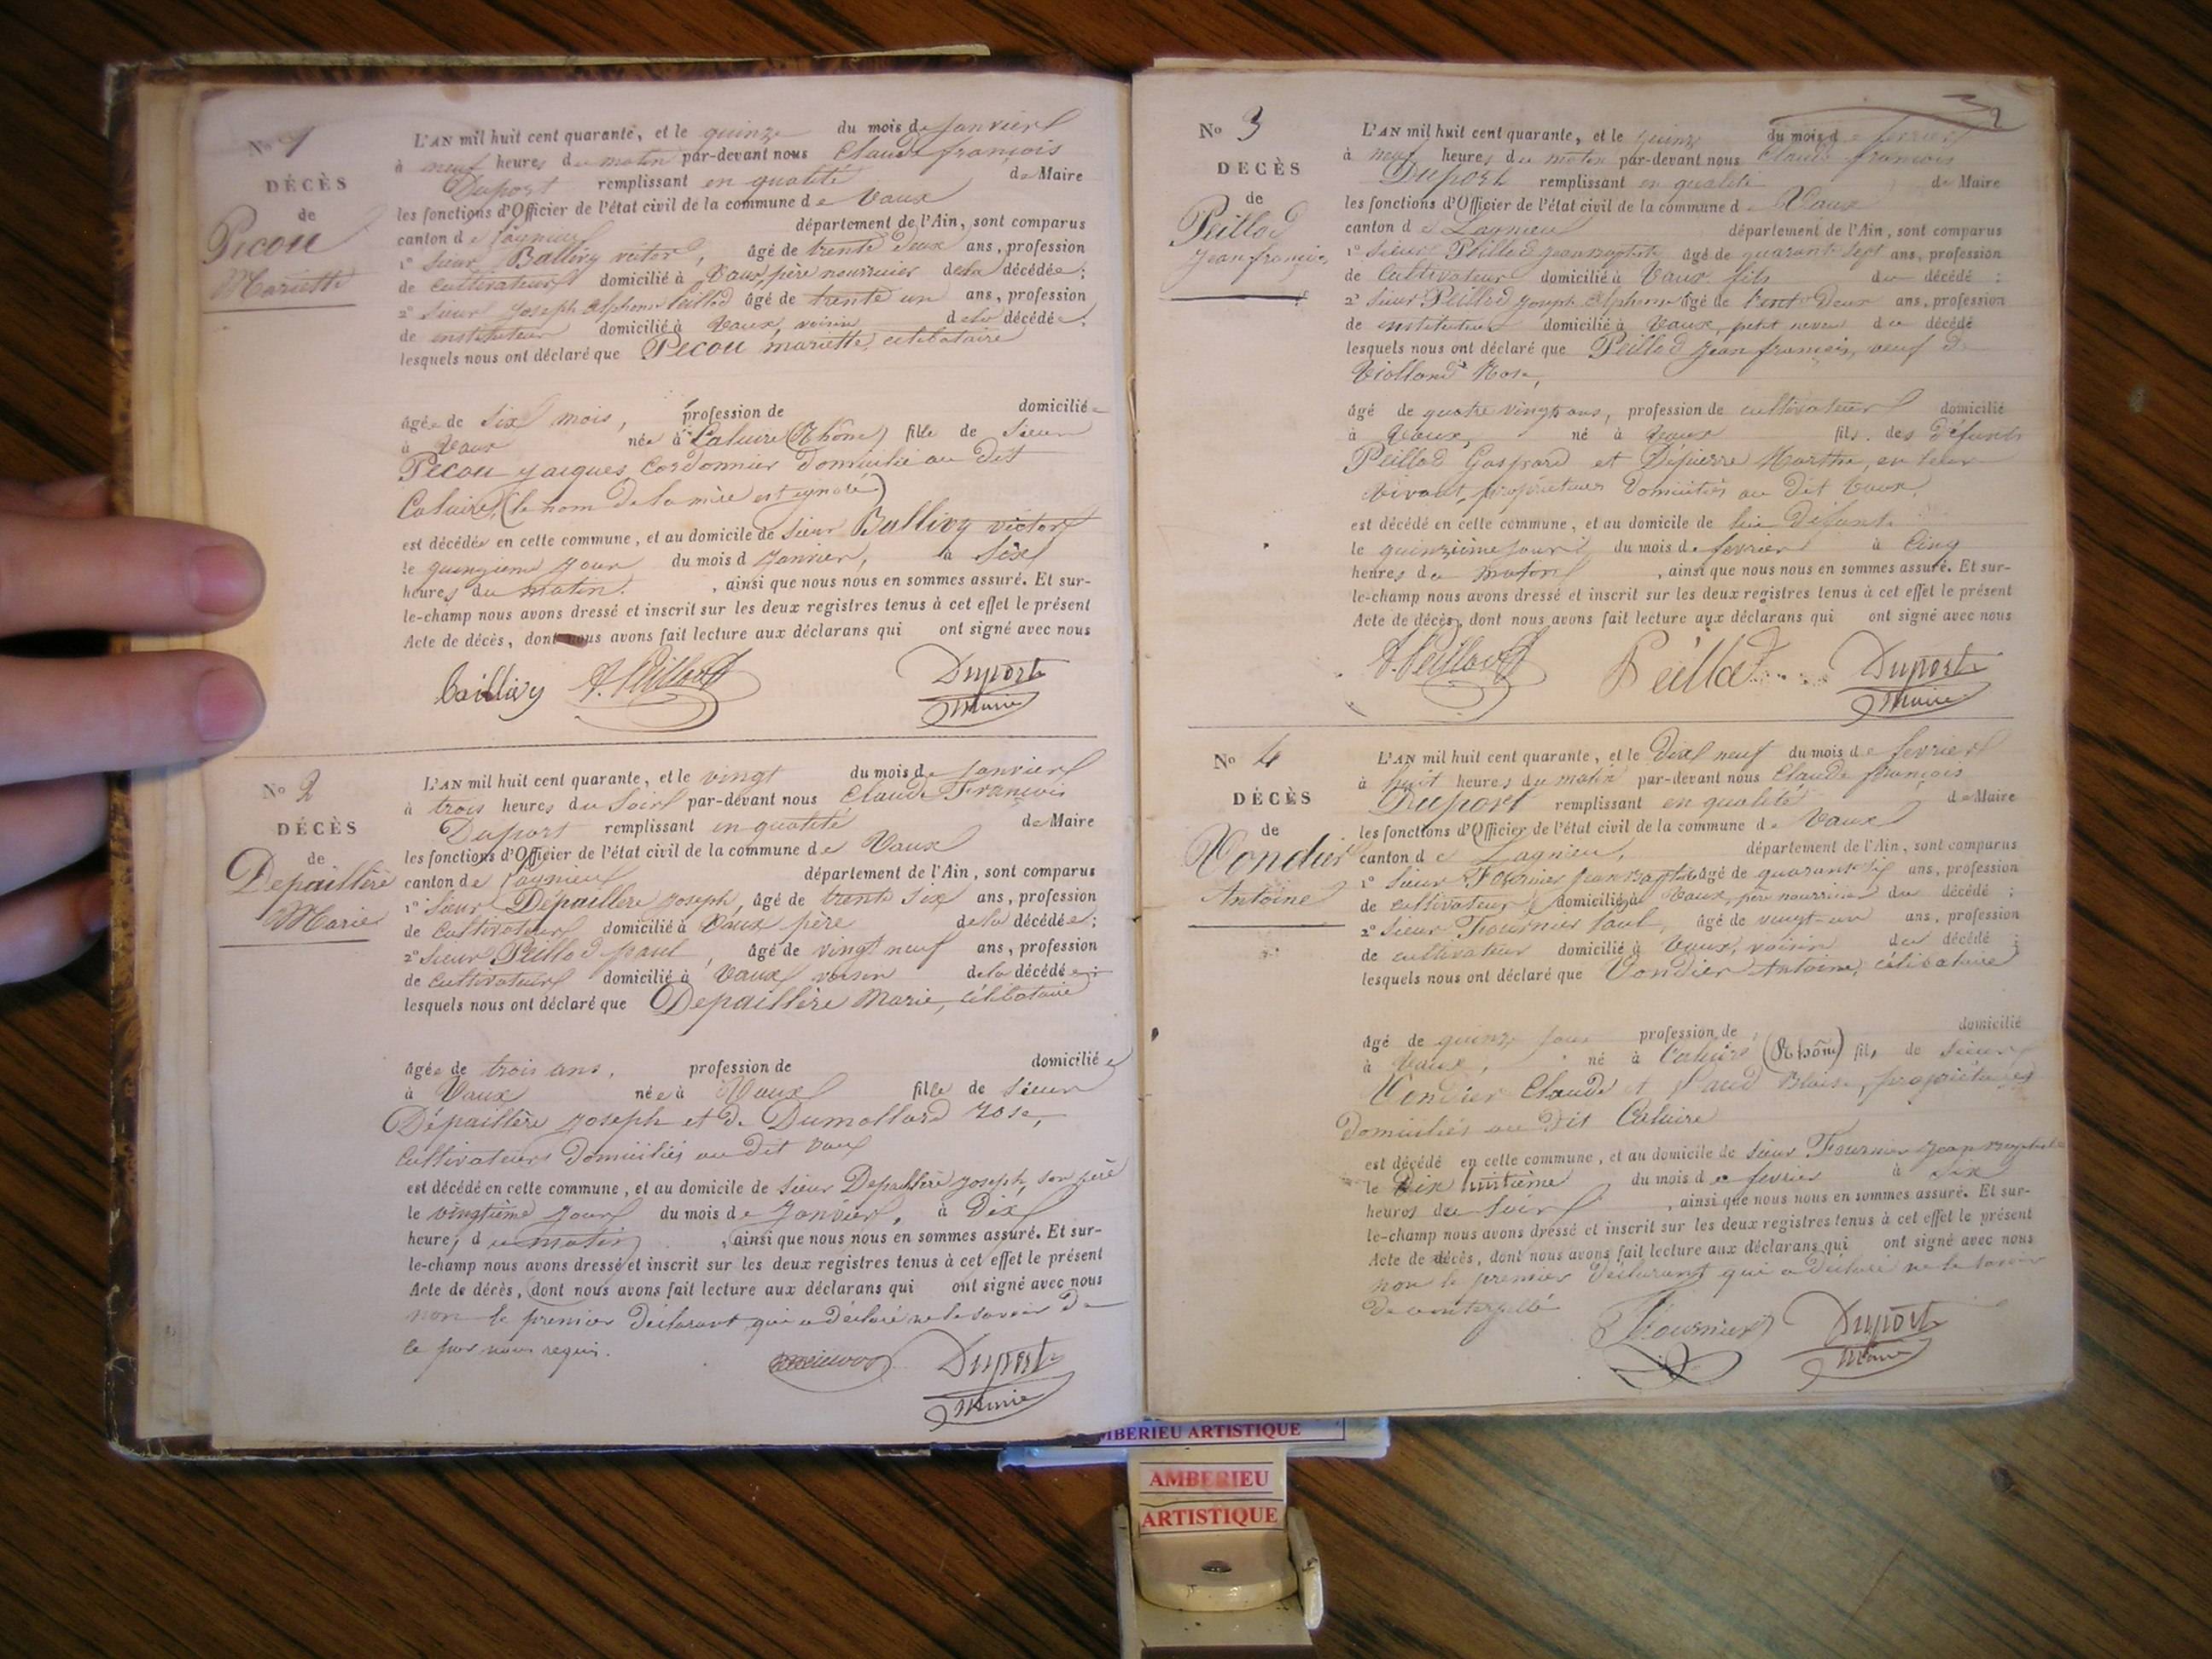 No 1
DÉCÈS
de
Pecou
Mariette
L'AN mil huit cent quarante, et le quinze du mois de janvier
à neuf heures du matin par-devant nous Claude françois
Duport remplissant en qualité de Maire
les fonctions d'Officier de l'état civil de la commune de Vaux
canton de Lagnieu département de l'Ain, sont comparus
1° Sieur Ballivy victor, âgé de trente deux ans, profession
de cultivateur domicilié à Vaux, père nourricier de la décédée;
2° Sieur joseph alphonse Peillod âgé de trente un ans, profession
de instituteur domicilié à Vaux, voisin de la décédée;
lesquels nous ont déclaré que Pecou mariette, célibataire
âgée de six mois, profession de domiciliée
à Vaux née à Caluire (Rhône) fille de sieur
Pecou jacques, Cordonnier domicilié au dit
Caluire, (le nom de la mère est ignoré)
est décédée en cette commune, et au domicile de sieur Ballivy victor
le quinzième jour du mois d janvier, à six
heures du matin. , ainsi que nous nous en sommes assuré. Et sur-
le-champ nous avons dressé et inscrit sur les deux registres tenus à cet effet le présent
Acte de décès, dont nous avons fait lecture aux déclarans qui ont signé avec nous
A. Peillod Duport
Maire
No 2
DÉCÈS
de
Depaillère
Marie
L'AN mil huit cent quarante, et le vingt du mois de janvier
à trois heures du soir par-devant nous Claude François
Duport remplissant en qualité de Maire
les fonctions d'Officier de l'état civil de la commune de Vaux
canton de Lagnieu département de l'Ain, sont comparus
1° Sieur Dépaillère joseph, âgé de trente six ans, profession
de cultivateur domicilié à Vaux père de la décédée;
2° Sieur Peillod paul, âgé de vingt neuf ans, profession
de cultivateur domicilié à Vaux voisin de la décédée;
lesquels nous ont déclaré que Depaillère Marie, célibataire
âgée de trois ans, profession de domiciliée
à Vaux née à Vaux fille de sieur
Dépaillère joseph et de Dumollard rose,
cultivateurs domiciliés au dit vaux
est décédé en cette commune, et au domicile de sieur Depaillère joseph, son père
le vingtième jour du mois de janvier, à dix
heures du matin , ainsi que nous nous en sommes assuré. Et sur-
le-champ nous avons dressé et inscrit sur les deux registres tenus à cet effet le présent
Acte de décès, dont nous avons fait lecture aux déclarans qui ont signé avec nous
non le premier déclarant qui a déclaré ne le savoir de
ce par nous requis.
Duport
Maire
No 3
DÉCÈS
de
Peillod
jean françois
L'AN mil huit cent quarante, et le quinze du mois de fevrier
à neuf heures du matin par-devant nous Claude françois
Duport remplissant en qualité de Maire
les fonctions d'Officier de l'état civil de la commune d Vaux
canton de Lagnieu département de l'Ain, sont comparus
1° Sieur Peillod jean baptiste âgé de quarante sept ans, profession
de Cultivateur domicilié à Vaux fils du décédé;
2° Sieur Peillod joseph alphonse âgé de trente deux ans, profession
de instituteur domicilié à Vaux, petit neveu du décédé
lesquels nous ont déclaré que Peillod jean françois, veuf de
Violland Rose,
âgé de quatre vingts ans, profession de cultivateur domicilié
à Vaux, né à Vaux fils des défunts
Peillod Gaspard et Dépierre Marthe, en leur
vivant, propriétaires domiciliés au dit Vaux,
est décédé en cette commune, et au domicile de lui défunt.
le quinzième jour du mois de fevrier à cinq
heures du matin , ainsi que nous nous en sommes assuré. Et sur-
le-champ nous avons dressé et inscrit sur les deux registres tenus à cet effet le présent
Acte de décès, dont nous avons fait lecture aux déclarans qui ont signé avec nous
A. Peillod Peillod Duport
Maire
No 4
DÉCÈS
de
Vondier
Antoine
L'AN mil huit cent quarante, et le dix neuf du mois de fevrier
à huit heures du matin par-devant nous Claude françois
Duport remplissant en qualité de Maire
les fonctions d'Officier de l'état civil de la commune de Vaux
canton de Lagnieu, département de l'Ain, sont comparus
1° Sieur Fournier jean Baptiste âgé de quarante six ans, profession
de cultivateur domicilié à Vaux, père nourricier du décédé;
2° Sieur Fournier Paul, âgé de vingt un ans, profession
de cultivateur domicilié à Vaux, voisin du décédé;
lesquels nous ont déclaré que Vondier Antoine, célibataire
âgé de quinze jours profession de domicilié
à Vaux, né à Caluire (Rhône) fils de sieur
Vondier Claude et Blaise, propriétaires
domiciliés au dit Caluire
est décédé en cette commune, et au domicile de sieur Fournier jean Baptiste
le Dix huitième du mois de fevrier à six
heures du soir , ainsi que nous nous en sommes assuré. Et sur-
le-champ nous avons dressé et inscrit sur les deux registres tenus à cet effet le présent
Acte de décès, dont nous avons fait lecture aux déclarans qui ont signé avec nous
non le premier déclarant qui a déclaré ne le savoir
de ce interpellé
Fournier Duport
Maire
AMBERIEU ARTISTIQUE
AMBERIEU
ARTISTIQUE